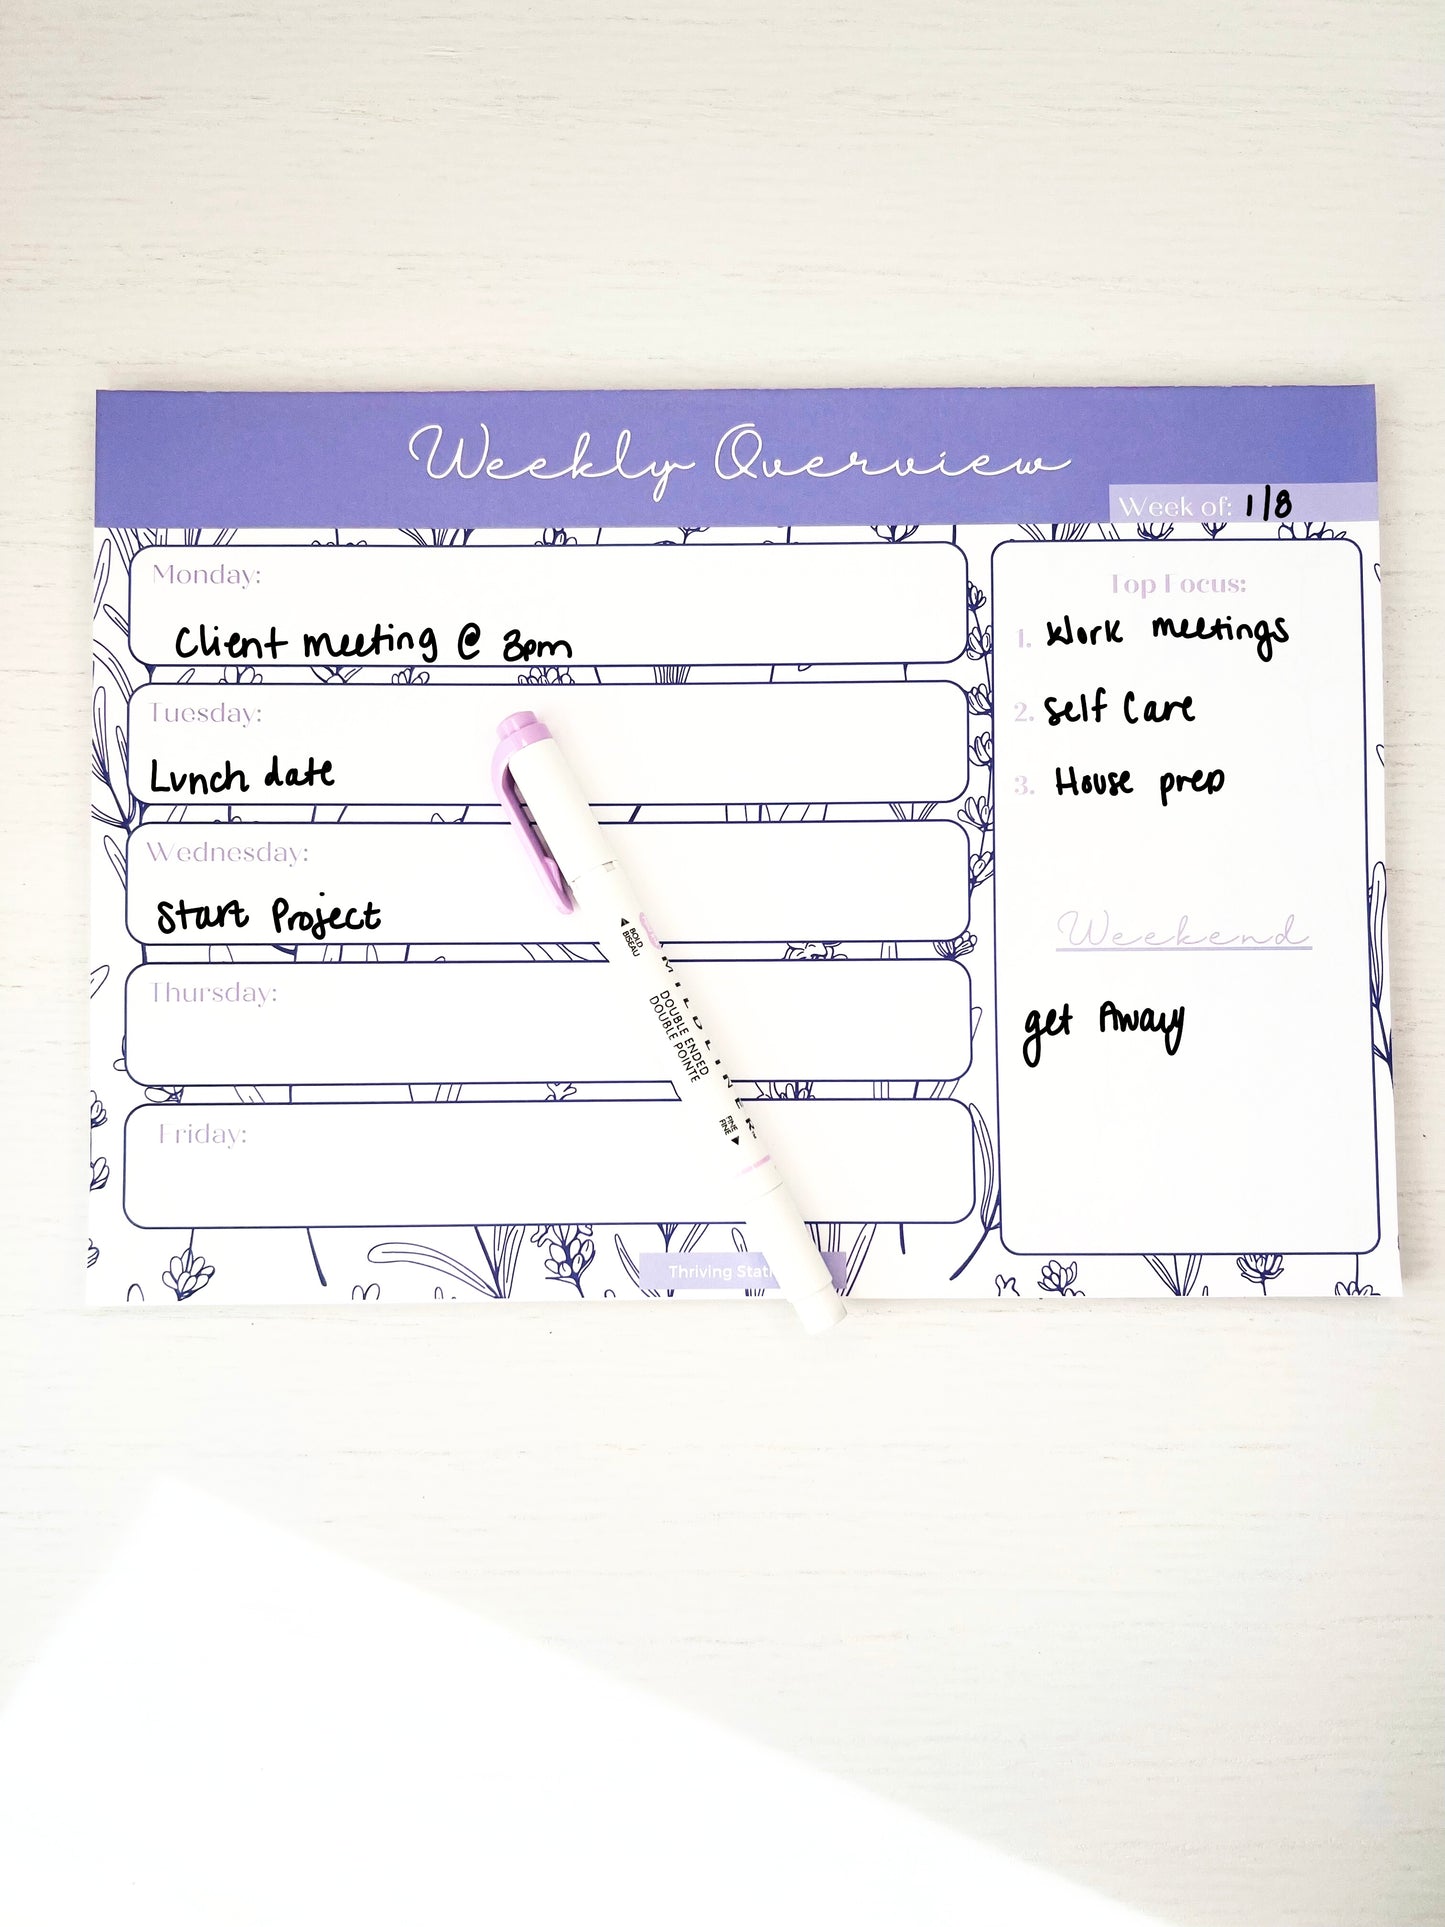 Weekly Overview
Week of: 1/8
Monday:
Client meeting @ 3pm
Tuesday:
Lunch date
Wednesday:
Start Project
Thursday:
Friday:
Top Focus:
1. Work meetings
2. Self Care
3. House prep
Weekend
get Away
BOLD
BISEAU
MILDLINER
DOUBLE ENDED
DOUBLE POINTE
FINE
FINE
Thriving